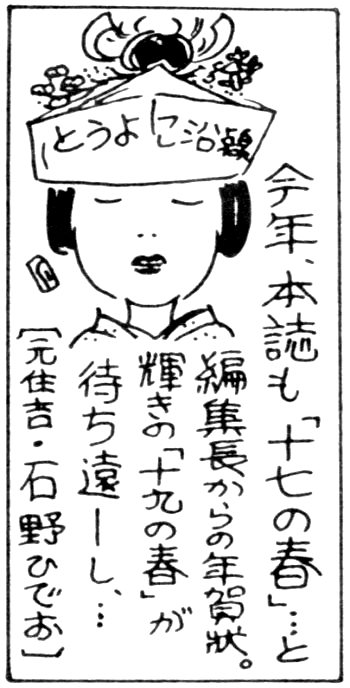 とうよこ沿線
今年、本誌も「十七の春」…と
編集長からの年賀状。
輝きの「十九の春」が
待ち遠ーし、…
〔元住吉・石野ひでお〕